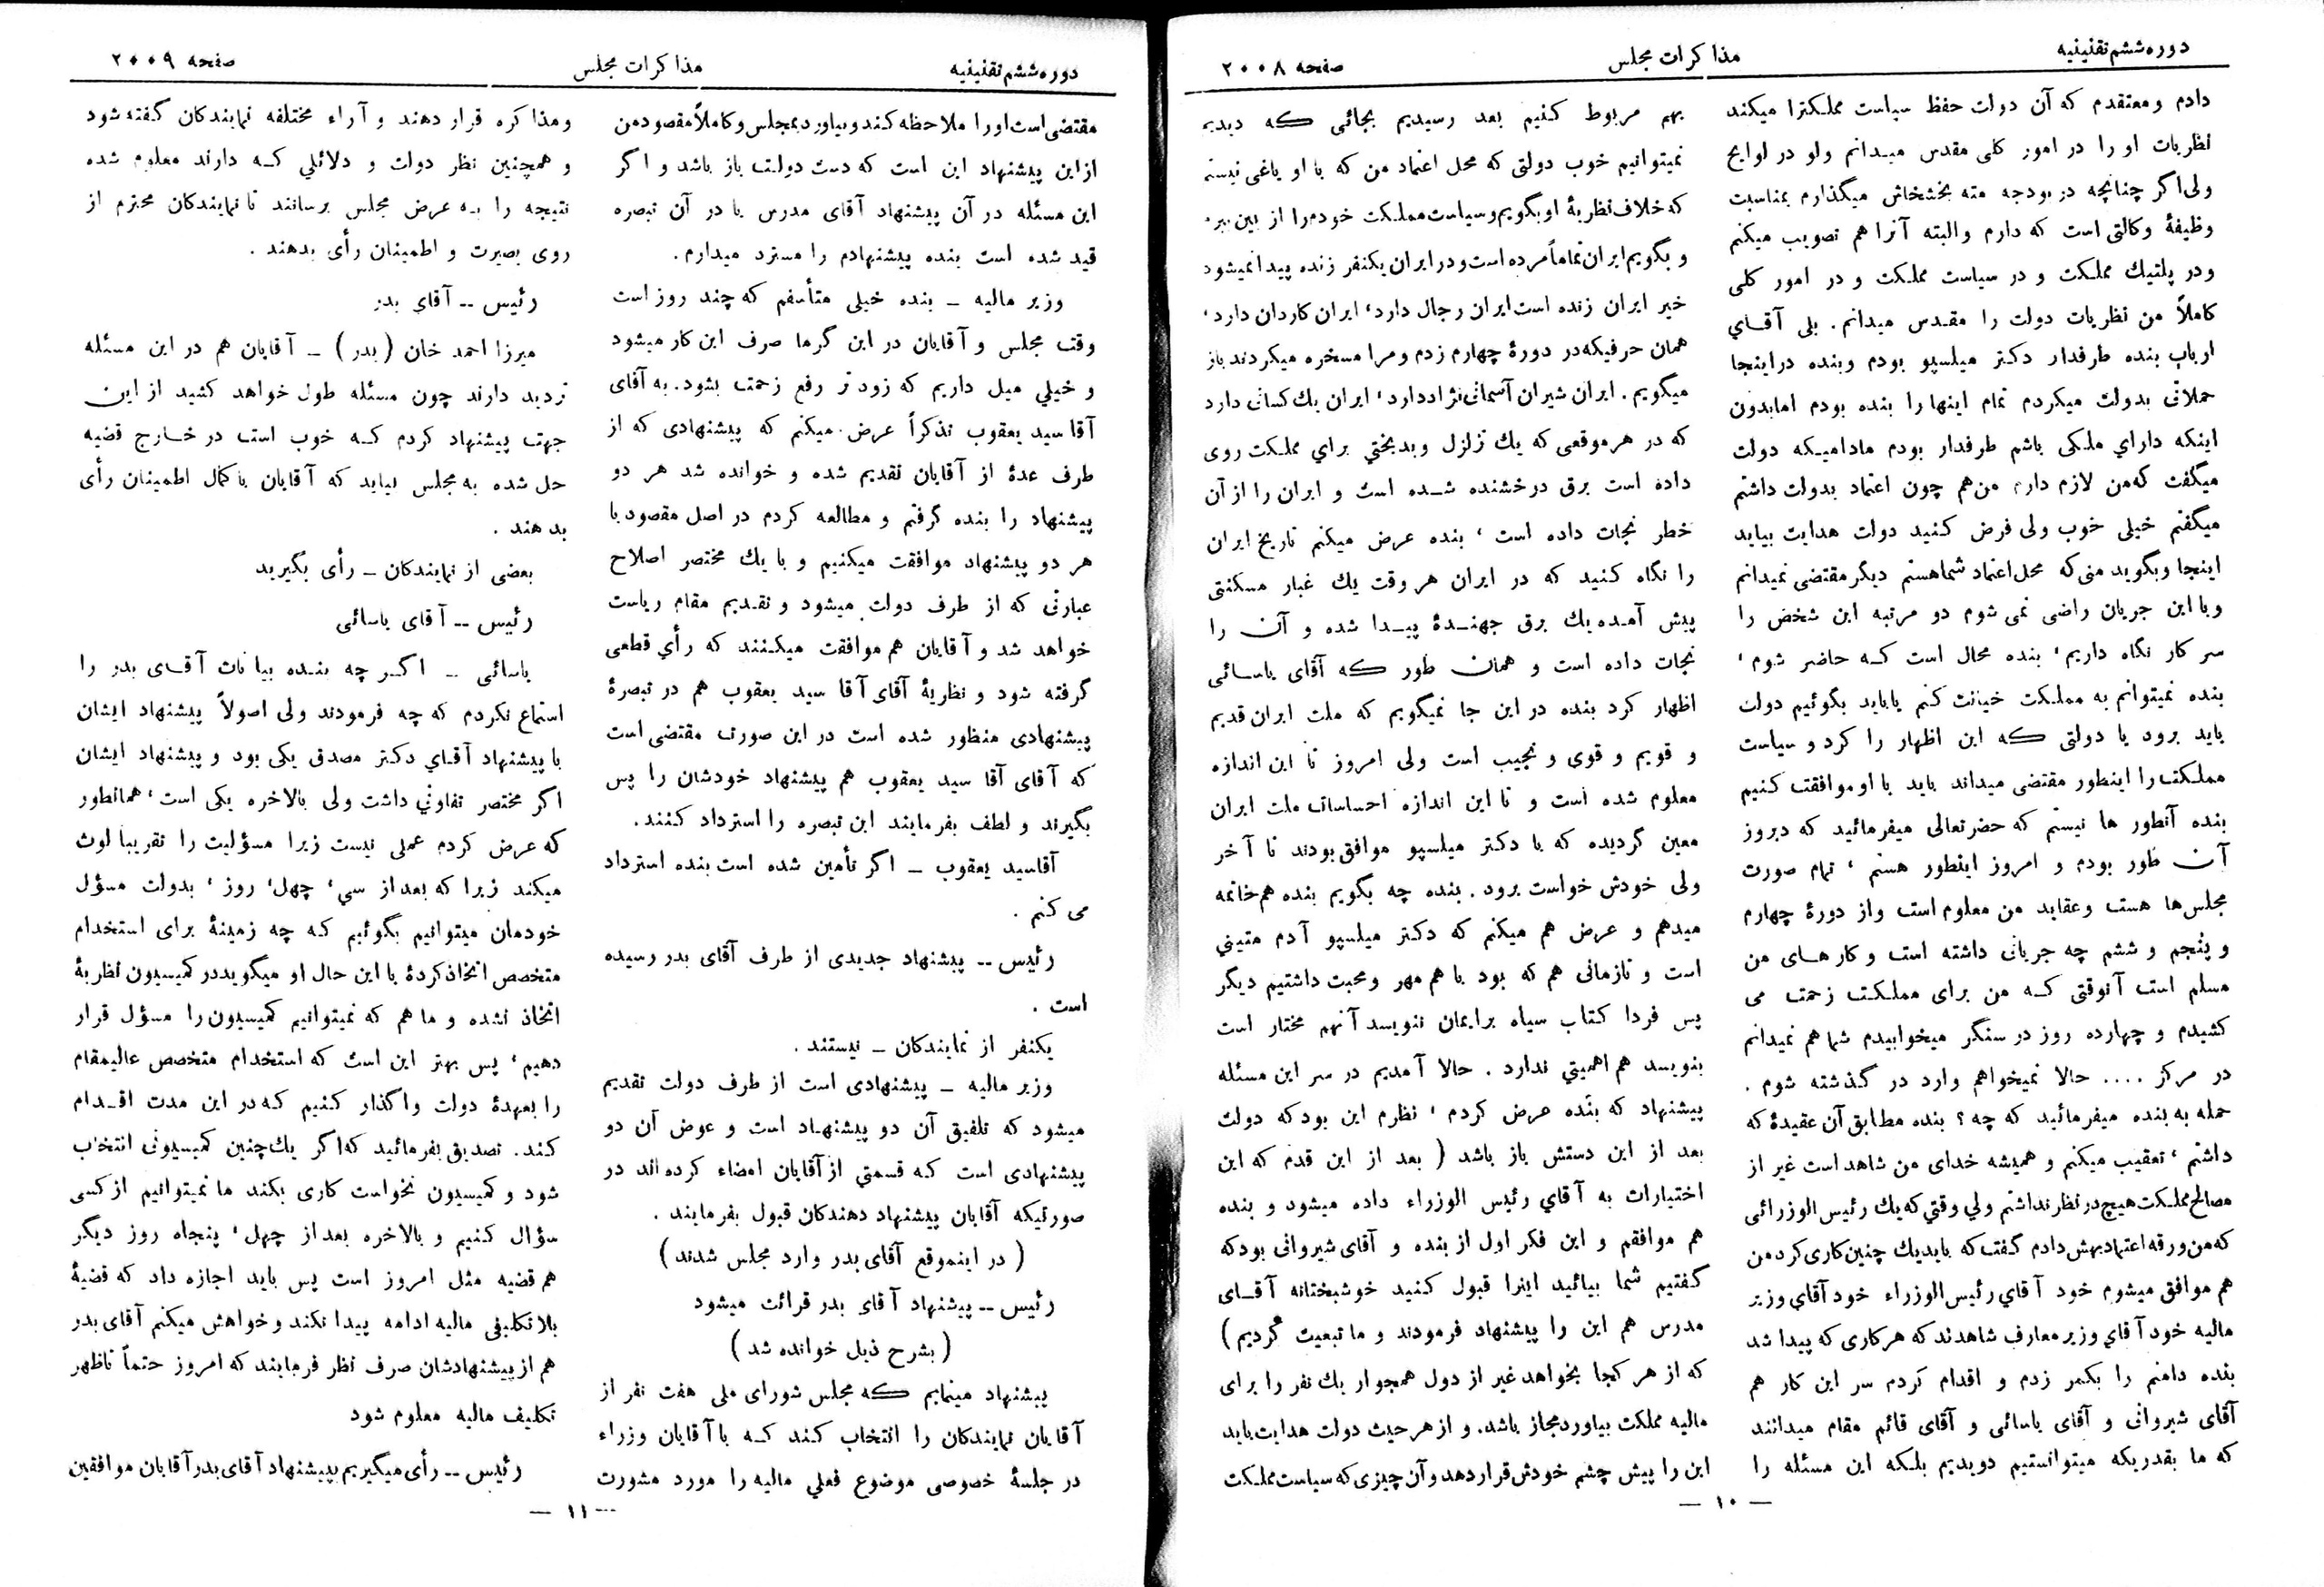 دوره ششم تقنینیه
مذاکرات مجلس
صفحه ۲۰۰۸
دادم ومعتقدم که آن دولت حفظ سیاست مملکترا میکند
نظریات او را در امور کلی مقدس میدانم ولو در لوایح
ولی اگر چنانچه در بودجه مته بخشخاش میگذارم بمناسبت
وظیفهٔ وکالتی است که دارم والبته آنرا هم تصویب میکنم
ودر پلتیك مملکت و در سیاست مملکت و در امور کلی
کاملاً من نظریات دولت را مقدس میدانم. بلی آقای
ارباب بنده طرفدار دکتر میلسپو بودم وبنده دراینجا
حملاتی بدولت میکردم تمام اینها را بنده بودم امابدون
اینکه دارای ملکی باشم طرفدار بودم مادامیکه دولت
میگفت که من لازم دارم من هم چون اعتماد بدولت داشتم
میگفتم خیلی خوب ولی فرض کنید دولت هدایت بیاید
اینجا وبگوید منی که محل اعتماد شماهستم دیگر مقتضی نمیدانم
وبا این جریان راضی نمی شوم دو مرتبه این شخص را
سر کار نگاه داریم، بنده محال است که حاضر شوم،
بنده نمیتوانم به مملکت خیانت کنم یاباید بگوئیم دولت
باید برود یا دولتی که این اظهار را کرد و سیاست
مملکت را اینطور مقتضی میداند باید با او موافقت کنیم
بنده آنطور ها نیستم که حضرتعالی میفرمائید که دیروز
آن طور بودم و امروز اینطور هستم ، تمام صورت
مجلس ها هست وعقاید من معلوم است واز دورهٔ چهارم
و پنجم و ششم چه جریانی داشته است و کار های من
مسلم است آنوقتی که من برای مملکت زحمت می
کشیدم و چهارده روز در سنگر میخوابیدم شما هم نمیدانم
در مرکز .... حالا نمیخواهم وارد در گذشته شوم .
حمله به بنده میفرمائید که چه ؟ بنده مطابق آن عقیدهٔ که
داشتم ، تعقیب میکنم و همیشه خدای من شاهد است غیر از
مصالح مملکت هیچ در نظر نداشتم ولی وقتی که یك رئیس الوزرائی
که من ورقه اعتماد بهش دادم گفت که باید یك چنین کاری کرد من
هم موافق میشوم خود آقای رئیس الوزراء خود آقای وزیر
مالیه خود آقای وزیر معارف شاهدند که هر کاری که پیدا شد
بنده دامنم را بکمر زدم و اقدام کردم سر این کار هم
آقای شیروانی و آقای یاسائی و آقای قائم مقام میدانند
که ما بقدریکه میتوانستیم دویدیم بلکه این مسئله را
بهم مربوط کنیم بعد رسیدیم بجائی که دیدیم
نمیتوانیم خوب دولتی که محل اعتماد من که با او یاغی نیستم
که خلاف نظریهٔ او بگویم و سیاست مملکت خودم را از بین ببرم
و بگویم ایران تماماً مرده است و در ایران یکنفر زنده پیدا نمیشود
خیر ایران زنده است ایران رجال دارد، ایران کاردان دارد،
همان حرفیکه در دورهٔ چهارم زدم و مرا مسخره میکردند باز
میگویم. ایران شیران آسمانی نژاد دارد، ایران یك کسانی دارد
که در هر موقعی که یك تزلزل و بدبختی برای مملکت روی
داده است برق درخشنده شده است و ایران را از آن
خطر نجات داده است ، بنده عرض میکنم تاریخ ایران
را نگاه کنید که در ایران هر وقت یك غبار مسکنتی
پیش آمده یك برق جهندهٔ پیدا شده و آن را
نجات داده است و همان طور که آقای یاسائی
اظهار کرد بنده در این جا نمیگویم که ملت ایران قدیم
و قویم و قوی و نجیب است ولی امروز تا این اندازه
معلوم شده است و تا این اندازه احساسات ملت ایران
معین گردیده که با دکتر میلسپو موافق بودند تا آخر
ولی خودش خواست برود. بنده چه بگویم بنده هم خاتمه
میدهم و عرض هم میکنم که دکتر میلسپو آدم متینی
است و تازمانی هم که بود با هم مهر و محبت داشتیم دیگر
پس فردا کتاب سیاه برایمان ننویسد آنهم مختار است
بنویسد هم اهمیتی ندارد . حالا آمدیم در سر این مسئله
پیشنهاد که بنده عرض کردم ، نظرم این بود که دولت
بعد از این دستش باز باشد ( بعد از این قدم که این
اختیارات به آقای رئیس الوزراء داده میشود و بنده
هم موافقم و این فکر اول از بنده و آقای شیروانی بود که
گفتیم شما بیائید اینرا قبول کنید خوشبختانه آقای
مدرس هم این را پیشنهاد فرمودند و ما تبعیت کردیم )
که از هر کجا بخواهد غیر از دول همجوار یك نفر را برای
مالیه مملکت بیاورد مجاز باشد. و از هر حیث دولت هدایت باید
این را پیش چشم خودش قرار دهد و آن چیزی که سیاست مملکت
— ۱۰ —
دوره ششم تقنینیه
مذاکرات مجلس
صفحه ۲۰۰۹
مقتضی است او را ملاحظه کند و بیاورد بمجلس و کاملاً مقصود من
از این پیشنهاد این است که دست دولت باز باشد و اگر
این مسئله در آن پیشنهاد آقای مدرس یا در آن تبصره
قید شده است بنده پیشنهادم را مسترد میدارم.
وزیر مالیه ـ بنده خیلی متأسفم که چند روز است
وقت مجلس و آقایان در این گرما صرف این کار میشود
و خیلی میل داریم که زود تر رفع زحمت بشود. به آقای
آقا سید یعقوب تذکراً عرض میکنم که پیشنهادی که از
طرف عدهٔ از آقایان تقدیم شده و خوانده شد هر دو
پیشنهاد را بنده گرفتم و مطالعه کردم در اصل مقصود با
هر دو پیشنهاد موافقت میکنیم و با یك مختصر اصلاح
عبارتی که از طرف دولت میشود و تقدیم مقام ریاست
خواهد شد و آقایان هم موافقت میکنند که رأی قطعی
گرفته شود و نظریهٔ آقای آقا سید یعقوب هم در تبصرهٔ
پیشنهادی منظور شده است در این صورت مقتضی است
که آقای آقا سید یعقوب هم پیشنهاد خودشان را پس
بگیرند و لطف بفرمایند این تبصره را استرداد کنند.
آقاسید یعقوب ـ اگر تأمین شده است بنده استرداد
می کنم .
رئیس ـ پیشنهاد جدیدی از طرف آقای بدر رسیده
است .
یکنفر از نمایندگان ـ نیستند .
وزیر مالیه ـ پیشنهادی است از طرف دولت تقدیم
میشود که تلفیق آن دو پیشنهاد است و عوض آن دو
پیشنهادی است که قسمتی از آقایان امضاء کرده اند در
صورتیکه آقایان پیشنهاد دهندگان قبول بفرمایند .
( در اینموقع آقای بدر وارد مجلس شدند )
رئیس ـ پیشنهاد آقای بدر قرائت میشود
( بشرح ذیل خوانده شد )
پیشنهاد مینمایم که مجلس شورای ملی هفت نفر از
آقایان نمایندگان را انتخاب کند که با آقایان وزراء
در جلسهٔ خصوصی موضوع فعلی مالیه را مورد مشورت
ومذاکره قرار دهند و آراء مختلفه نمایندگان گفته شود
و همچنین نظر دولت و دلائلی که دارند معلوم شده
نتیجه را به عرض مجلس برسانند تا نمایندگان محترم از
روی بصیرت و اطمینان رأی بدهند .
رئیس ـ آقای بدر
میرزا احمد خان ( بدر ) ـ آقایان هم در این مسئله
تردید دارند چون مسئله طول خواهد کشید از این
جهت پیشنهاد کردم که خوب است در خارج قضیه
حل شده به مجلس بیاید که آقایان با کمال اطمینان رأی
بدهند .
بعضی از نمایندگان ـ رأی بگیرید
رئیس ـ آقای یاسائی
یاسائی ـ اگر چه بنده بیانات آقای بدر را
استماع نکردم که چه فرمودند ولی اصولاً پیشنهاد ایشان
با پیشنهاد آقای دکتر مصدق یکی بود و پیشنهاد ایشان
اگر مختصر تفاوتی داشت ولی بالاخره یکی است، همانطور
که عرض کردم عملی نیست زیرا مسؤلیت را تقریباً لوث
میکند زیرا که بعد از سی، چهل، روز ، بدولت مسؤل
خودمان میتوانیم بگوئیم که چه زمینهٔ برای استخدام
متخصص اتخاذ کردهٔ با این حال او میگوید در کمیسیون نظریهٔ
اتخاذ نشده و ما هم که نمیتوانیم کمیسیون را مسؤل قرار
دهیم، پس بهتر این است که استخدام متخصص عالیمقام
را بعهدهٔ دولت واگذار کنیم که در این مدت اقدام
کند. تصدیق بفرمائید که اگر یك چنین کمیسیونی انتخاب
شود و کمیسیون نخواست کاری بکند ما نمیتوانیم از کسی
سؤال کنیم و بالاخره بعد از چهل، پنجاه روز دیگر
هم قضیه مثل امروز است پس باید اجازه داد که قضیهٔ
بلا تکلیفی مالیه ادامه پیدا نکند و خواهش میکنم آقای بدر
هم از پیشنهادشان صرف نظر فرمایند که امروز حتماً تا ظهر
تکلیف مالیه معلوم شود
رئیس ـ رأی میگیریم بپیشنهاد آقای بدر آقایان موافقین
— ۱۱ —